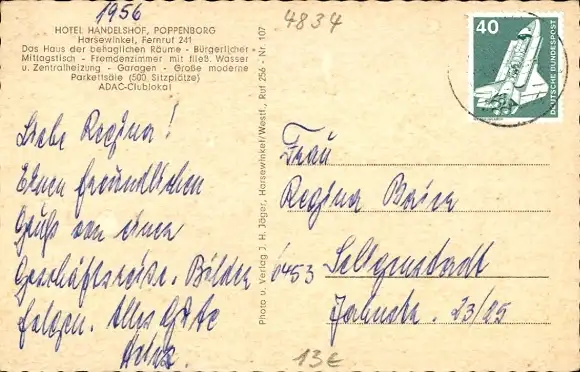 1956
HOTEL HANDELSHOF, POPPENBORG
Harsewinkel, Fernruf 241
Das Haus der behaglichen Räume - Bürgerlicher
Mittagstisch - Fremdenzimmer mit fließ. Wasser
u. Zentralheizung - Garagen - Große moderne
Parkettsäle (500 Sitzplätze)
ADAC-Clublokal
Liebe Regina!
Einen freundlichen
Gruß von einer
Geschäftsreise. Bilder
folgen. Alles Gute
Photo u. Verlag J. H. Jäger, Harsewinkel/Westf., Ruf 256 - Nr. 107
4834
40
DEUTSCHE BUNDESPOST
Frau
Regina Baier
6453 Seligenstadt
Jahnstr. 23/25
13€